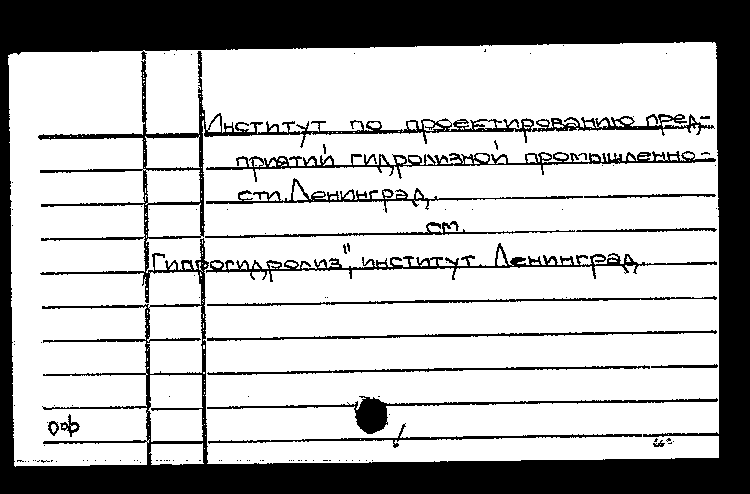 Институт по проектированию пред-
приятий гидролизной промышленно-
сти. Ленинград.
см.
"Гипрогидролиз", институт. Ленинград.
офф